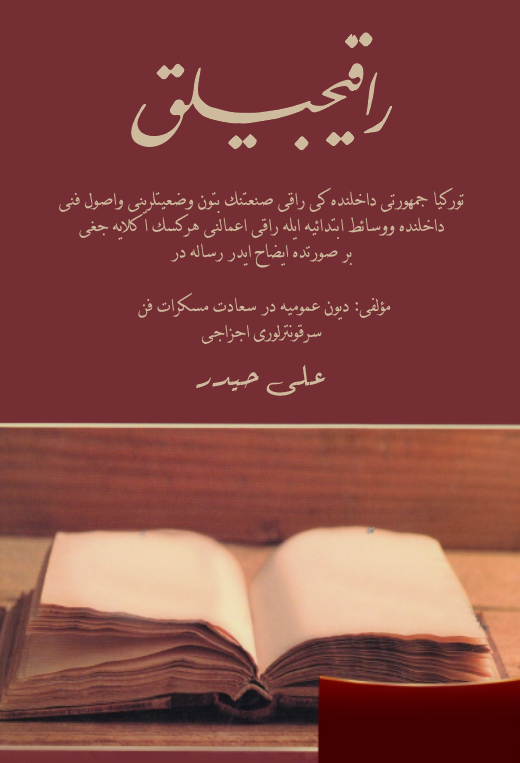 راقیجیلق
تورکیا جمهورتی داخلنده کی راقی صنعتنك بتون وضعیتلرینی واصول فنی
داخلنده ووسائط ابتدائیه ایله راقی اعمالنی هرکسك آکلایه جغی
بر صورتده ایضاح ایدر رساله در
مؤلفی: دیون عمومیه در سعادت مسکرات فن
سرقونترلوری اجزاجی
علی حیدر